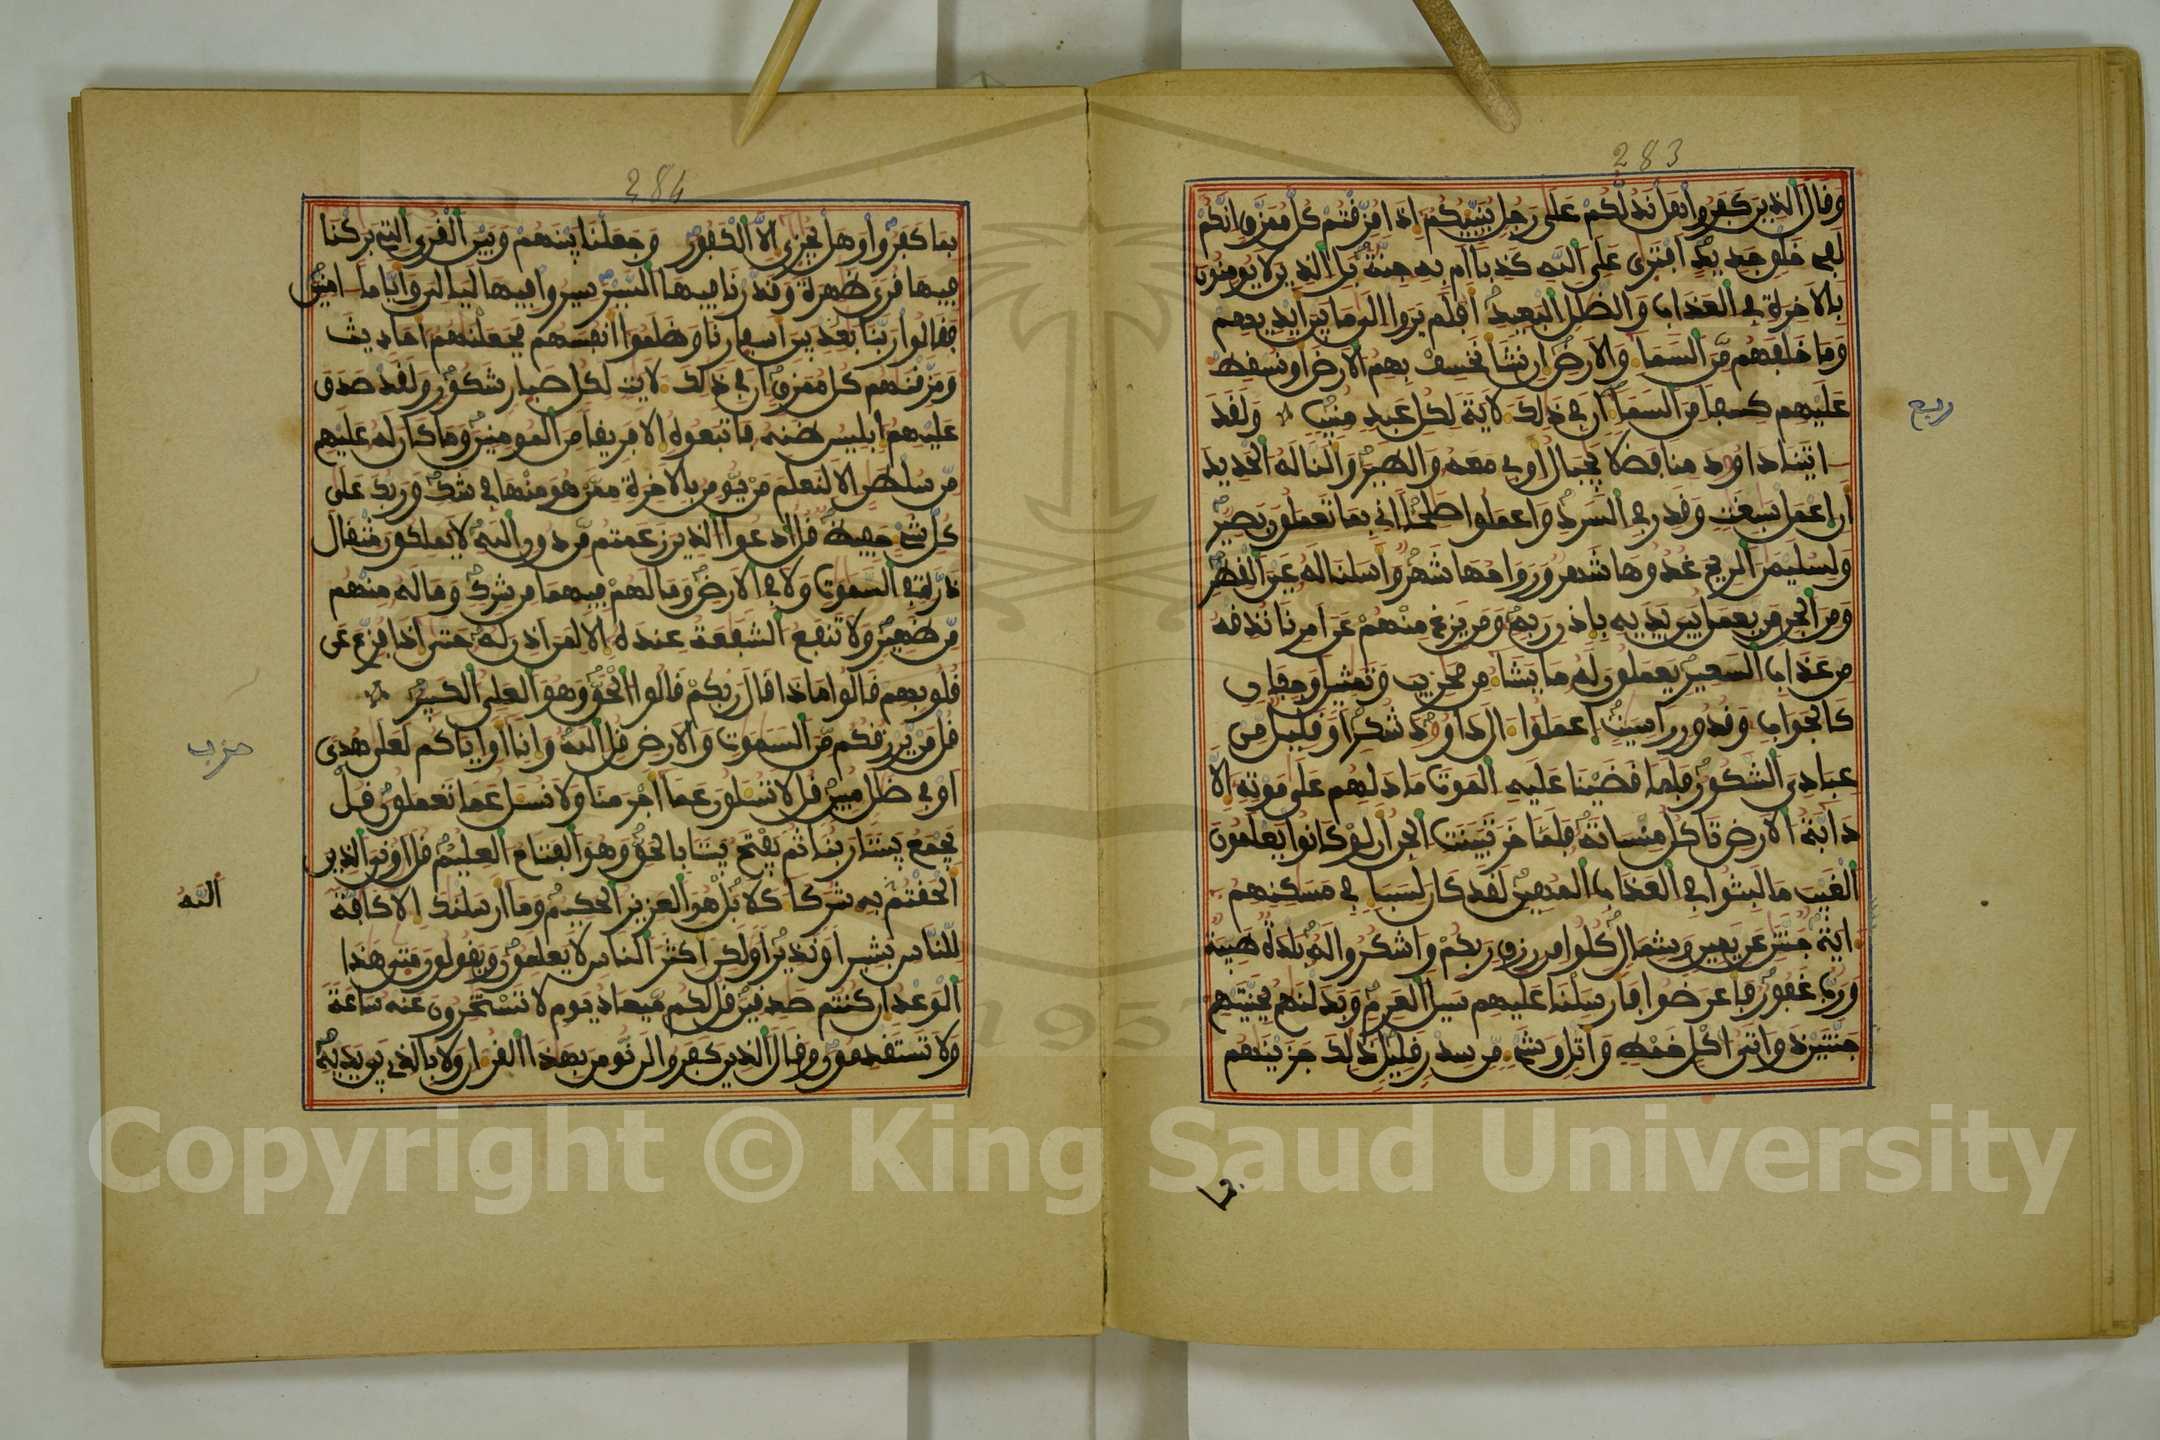 283
وقال الذين كفروا هل ندلكم على رجل ينبيكم إذا مزقتم كل ممزق انكم
لفي خلق جديد افترى على الله كذبا ام به جنة بل الذين لا يومنون
بالاخرة في العذاب والظلل البعيد افلم يروا الى ما بين ايديهم
وما خلفهم من السما والارض ان نشا نخسف بهم الارض او نسقط
عليهم كسفا من السما ان في ذلك لاية لكل عبد منيب ولقد
ربع
اتينا داوود منا فضلا يجبال اوبي معه والطير والنا له الحديد
ان اعمل سبغت وقدر في السرد واعملوا صلحا اني بما تعملون بصير
ولسليمن الريح غدوها شهر ورواحها شهر واسلنا له عين القطر
ومن الجن من يعمل بين يديه باذن ربه ومن يزغ منهم عن امرنا نذقه
من عذاب السعير يعملون له ما يشا من محريب وتمثيل وجفان
كالجواب وقدور راسيت اعملوا ال داوود شكرا وقليل من
عبادي الشكور فلما قضينا عليه الموت ما دلهم على موته الا
دابة الارض تاكل منساته فلما خر تبينت الجن ان لو كانوا يعلمون
الغيب ما لبثوا في العذاب المهين لقد كان لسبا في مسكنهم
اية جنتن عن يمين وشمال كلوا من رزق ربكم واشكروا له بلدة طيبة
ورب غفور فاعرضوا فارسلنا عليهم سيل العرم وبدلنهم بجنتيهم
جنتين ذواتي اكل خمط واثل وشي من سدر قليل ذلك جزينهم
284
بما كفروا وهل يجزى الا الكفور وجعلنا بينهم وبين القرى التي بركنا
فيها قرى ظهرة وقدرنا فيها السير سيروا فيها ليالي واياما امنين
فقالوا ربنا بعد بين اسفارنا وظلموا انفسهم فجعلنهم احاديث
ومزقنهم كل ممزق ان في ذلك لايت لكل صبار شكور ولقد صدق
عليهم ابليس ظنه فاتبعوه الا فريقا من المومنين وما كان له عليهم
من سلطن الا لنعلم من يومن بالاخرة ممن هو منها في شك وربك على
كل شي حفيظ قل ادعوا الذين زعمتم من دون الله لا يملكون مثقال
ذرة في السموت ولا في الارض وما لهم فيهما من شرك وما له منهم
من ظهير ولا تنفع الشفعة عنده الا لمن اذن له حتى اذا فزع عن
قلوبهم قالوا ماذا قال ربكم قالوا الحق وهو العلي الكبير
قل من يرزقكم من السموت والارض قل الله وانا او اياكم لعلى هدى
حزب
او في ظلل مبين قل لا تسلون عما اجرمنا ولا نسل عما تعملون قل
يجمع بيننا ربنا ثم يفتح بيننا بالحق وهو الفتاح العليم قل اروني الذين
الحقتم به شركا كلا بل هو العزيز الحكيم وما ارسلنك الا كافة
الله
للناس بشيرا ونذيرا ولكن اكثر الناس لا يعلمون ويقولون متى هذا
الوعد ان كنتم صدقين قل لكم ميعاد يوم لا تستخرون عنه ساعة
ولا تستقدمون وقال الذين كفروا لن نومن بهذا القران ولا بالذي بين يديه
Copyright © King Saud University
1957